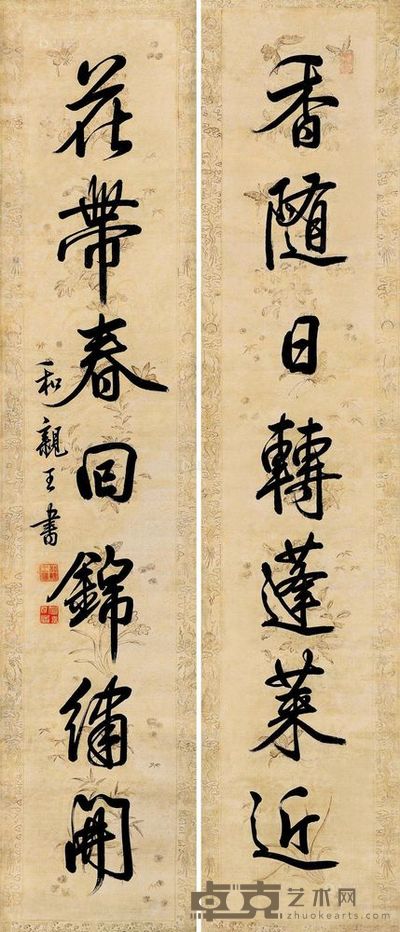 香隨日轉蓬萊近
花帶春回錦繡開
和親王書
卓克艺术网
zhuokearts.com